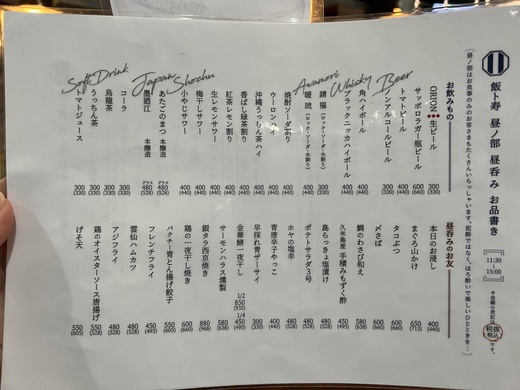 飯ト寿 昼ノ部 昼呑み お品書き
(昼ノ部はお食事のみのお客さまもたくさんいらっしゃいます。泥酔ではなく、ほろ酔いで楽しいひとときを…)
11:30 - 15:00
※金額の表記は 税抜(税込) です。
お飲みもの
Beer
ORION★★★生ビール 300(330)
サッポロラガー瓶ビール 600(660)
トマトビール 400(440)
ノンアルコールビール 400(440)
Whicky
角ハイボール 400(440)
ブラックニッカハイボール 400(440)
Awamori
請福(ロック・ソーダ・水割り) 300(330)
暖流(ロック・ソーダ・水割り) 400(440)
Shochu
焼酎ソーダ割り 400(440)
ウーロンハイ 400(440)
沖縄うっちん茶ハイ 400(440)
香ばし緑茶割り 400(440)
紅茶レモン割り 400(440)
生レモンサワー 400(440)
梅干しサワー 400(440)
小やじサワー 400(440)
Japan
あたごのまつ 本醸造 グラス 480(528)
墨廼江 本醸造 グラス 480(528)
Soft Drink
コーラ 300(330)
烏龍茶 300(330)
うっちん茶 300(330)
トマトジュース 300(330)
昼呑みのお友
本日のお浸し 400(440)
まぐろ山かけ 650(715)
タコぶつ 600(660)
〆さば 600(660)
鯛のわさび和え 580(638)
久米島産 手積みもずく酢
島らっきょ塩漬け 480(528)
ポテトサラダ3号 480(528)
ホヤの塩辛
青唐辛子やっこ 400(440)
早採れ青ザーサイ 300(330)
金華鯖一夜干し 1/2 850(935) 1/4 450(495)
サーモンハラス燻製 580(638)
銀タラ西京焼き 880(968)
鶏の一夜干し焼き 600(660)
パクチー青とん揚げ餃子 550(605)
フレンチフライ 450(495)
雲仙ハムカツ 480(528)
アジフライ 480(528)
鶏のオイスターソース唐揚げ 480(528)
げそ天 550(605)